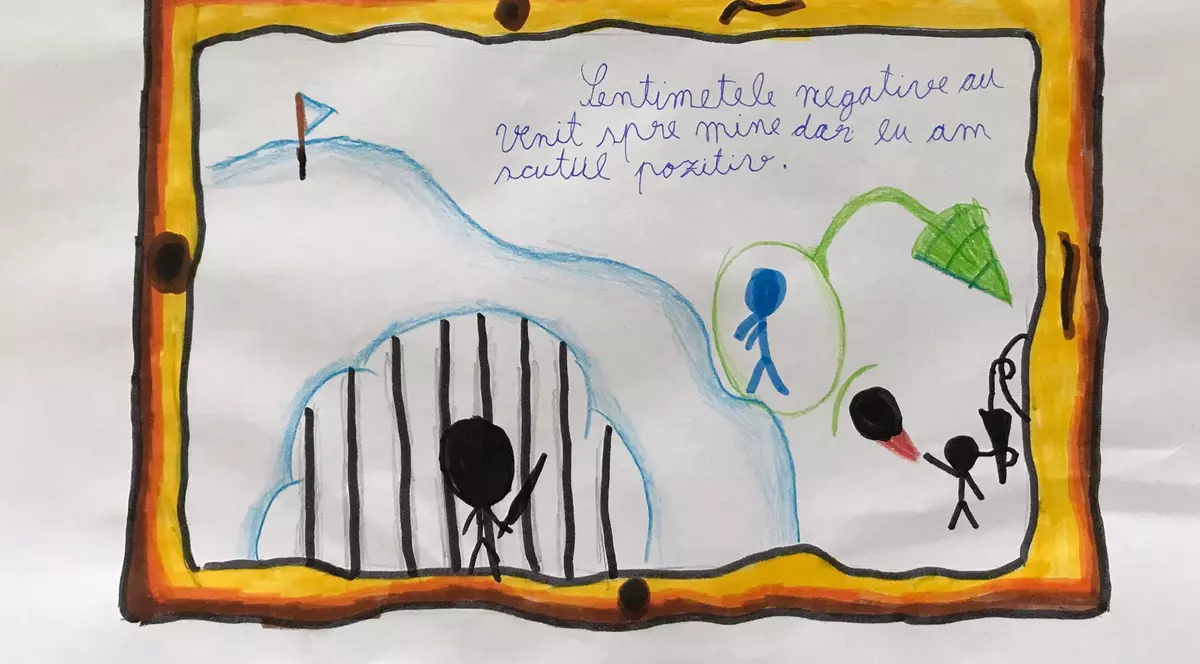 Sentimetele negative au
venit spre mine dar eu am
scutul pozitiv.